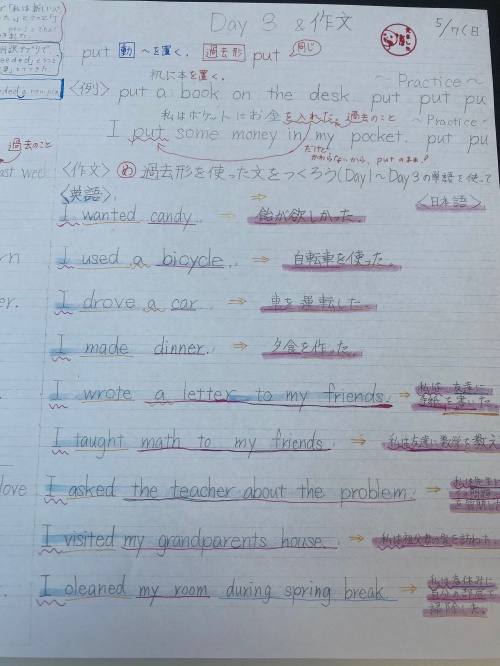 Day 3 & 作文
5/7(日
put 動 〜を置く. 過去形 put 同じ
机に本を置く.
〜 Practice 〜
<例> put a book on the desk. put put pu
私はポケットにお金を入れた. 過去のこと
〜 Practice 〜
I put some money in my pocket. put pu
だけど、
かわらないから、putのまま!
過去のこと
ast wed.
<作文> め 過去形を使った文をつくろう(Day1〜Day3の単語を使って
<英語>
⇒
<日本語>
I wanted candy. ⇒ 飴が欲しかった.
I used a bicycle. ⇒ 自転車を使った.
I drove a car. ⇒ 車を運転した.
I made dinner. ⇒ 夕食を作った.
I wrote a letter to my friends. ⇒ 私は友達に
手紙を書いた.
I taught math to my friends. ⇒ 私は友達に数学を教え
I asked the teacher about the problem. ⇒ 私は先生に
I visited my grandparents house. ⇒ 私は祖父母の家を訪れた.
I cleaned my room during spring break. ⇒ 私は春休みに
自分の部屋を
掃除した.